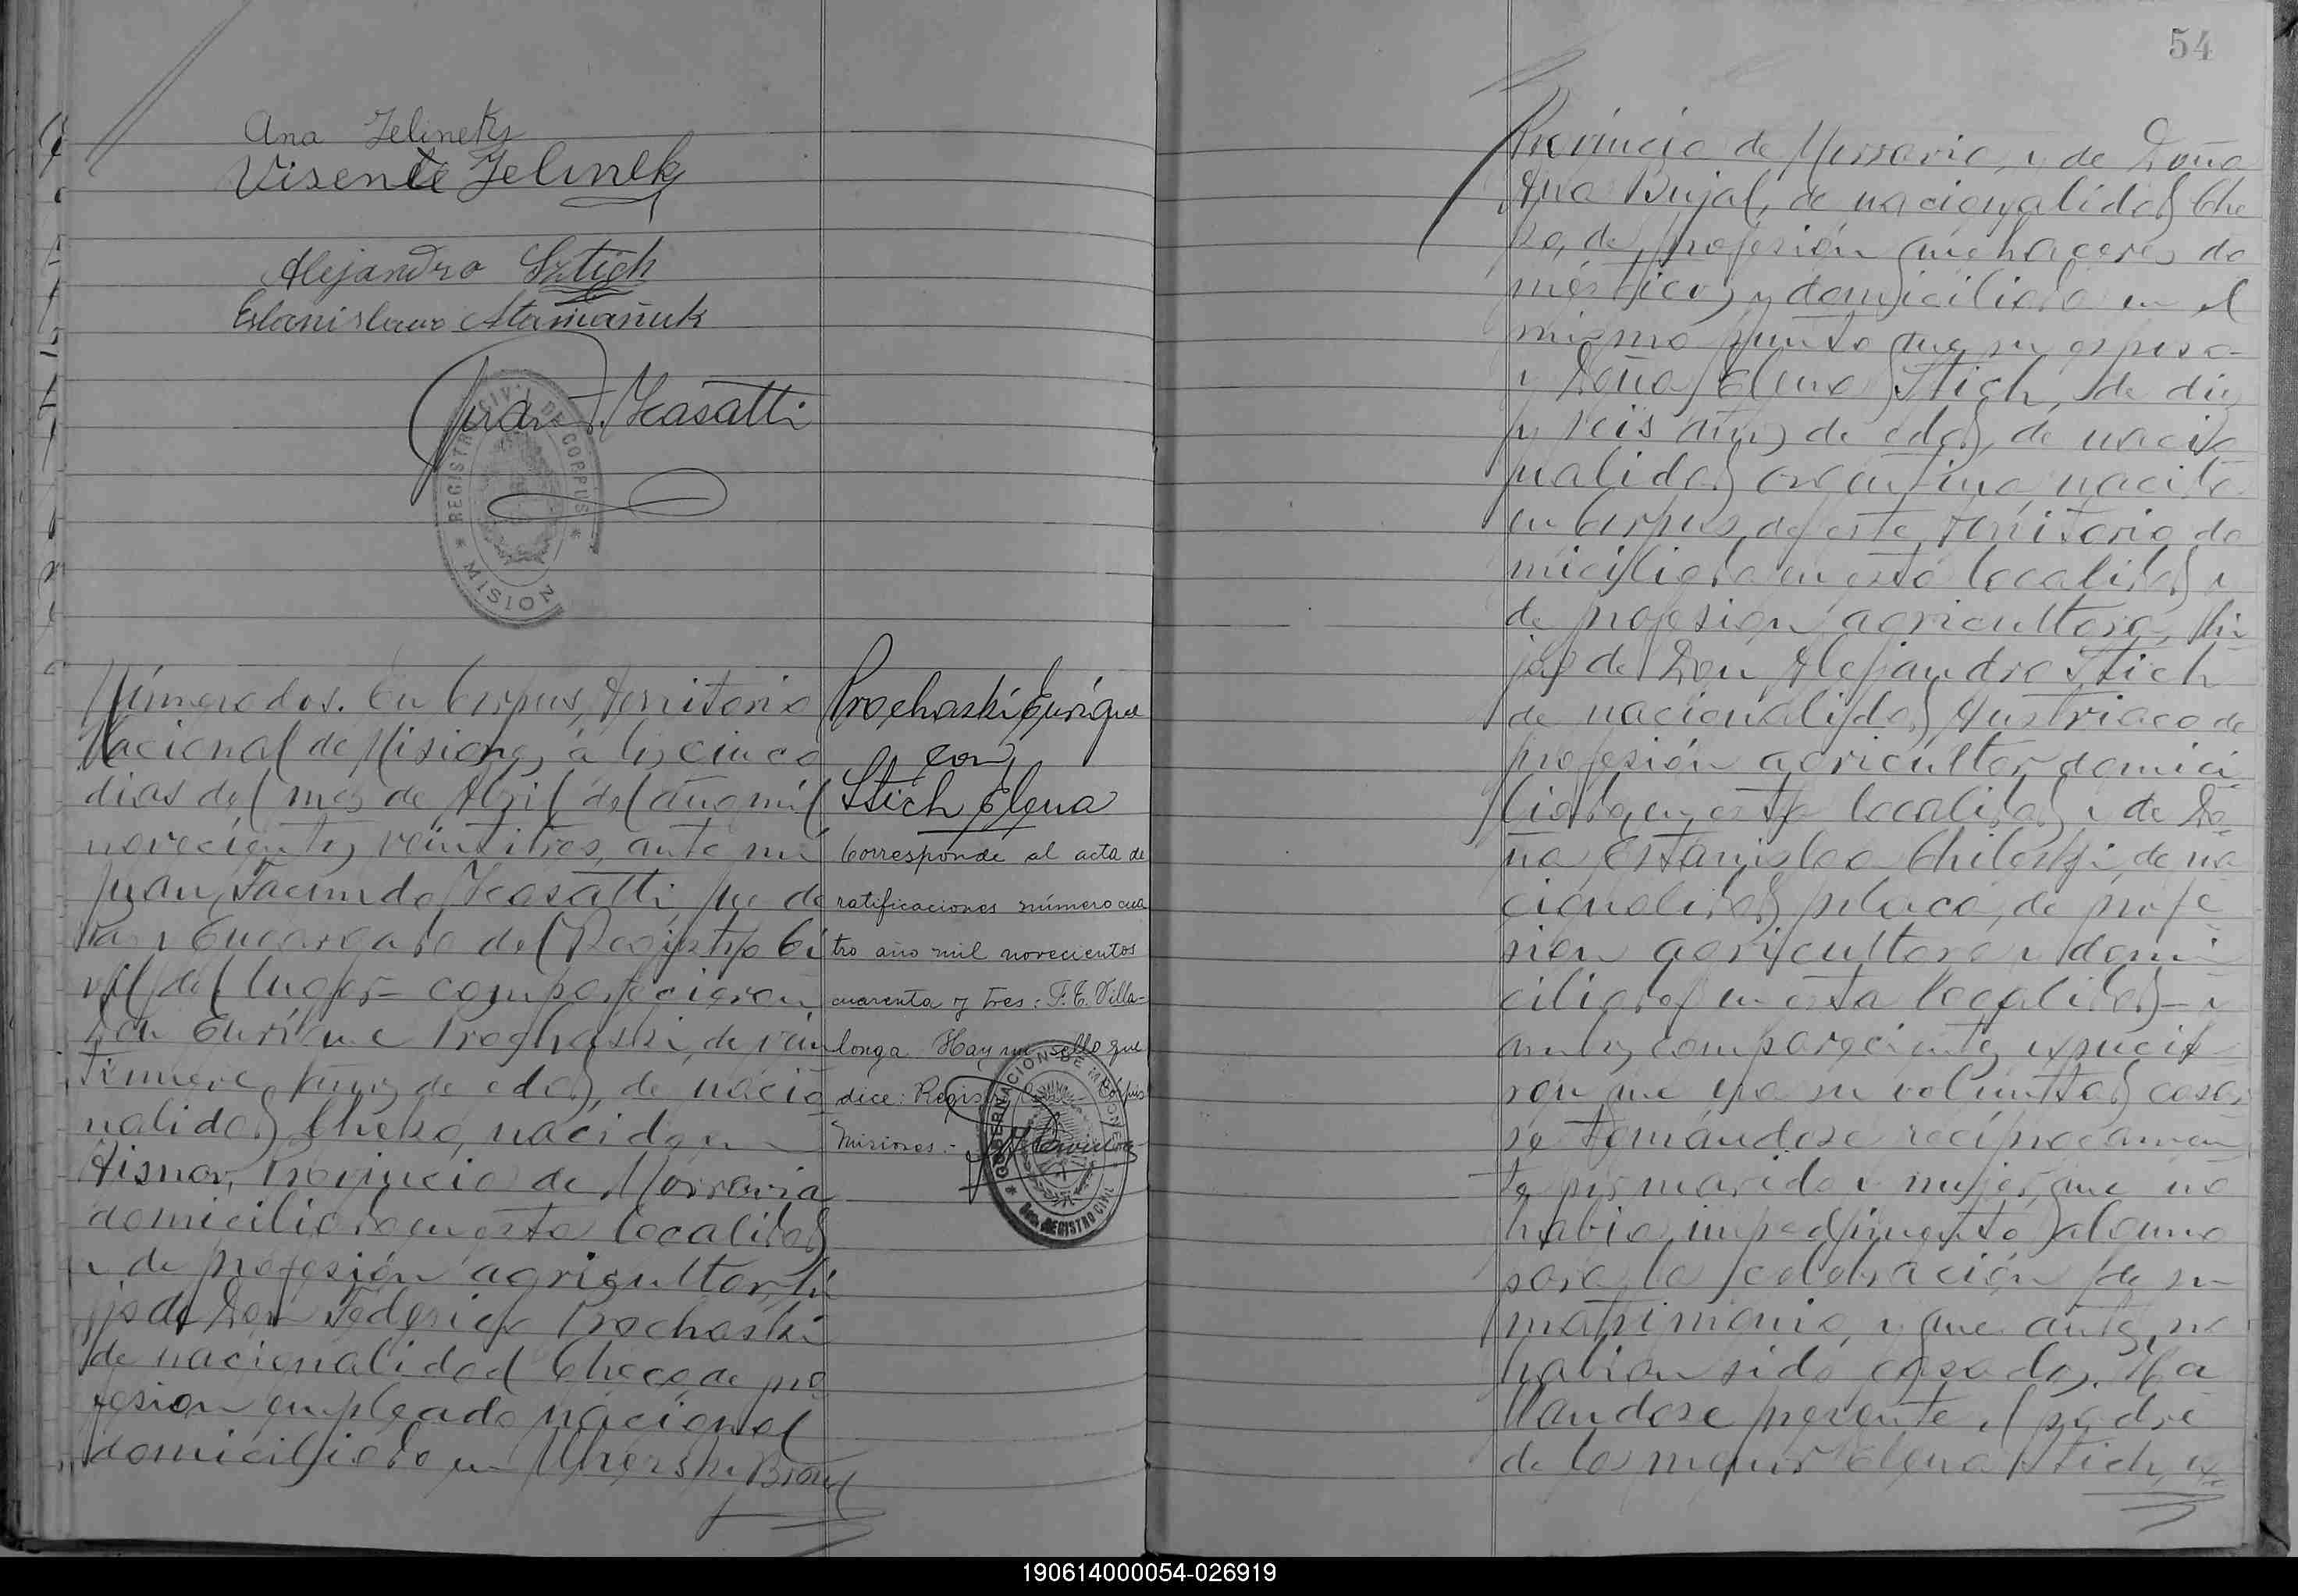 Ana Jelineks
Visente Jelinek
Alejandro Sztich
Estanislavo Atamañuk
Juan F. Kasatti
REGISTRO CIVIL DE CORPUS
* MISIONES *
Número dos. En Corpus, Territorio
Nacional de Misiones, á los cinco
dias del mes de Abril del año mil
novecientos veintitres, ante mí
Juan Facundo Kasatti Juez de
Paz y Encargado del Registro Ci
vil del lugar comparecieron
Don Enrique Prochaski, de vein
tinueve años de edad, de nacio
nalidad Cheko, nacido en
Aisnor, Provincia de Morravia
domiciliado en esta localidad
y de profesión agricultor, hi
jo de Don Federico Prochaski
de nacionalidad Checo, de pro
fesion empleado nacional
domiciliado en Uherski Brod
Prochaski Enrique
con
Stich Elena
Corresponde al acta de
ratificaciones número cua
tro año mil novecientos
cuarenta y tres: F. E. Villa-
longa. Hay un sello que
dice: Registro Corpus
Misiones.-
GOBERNACION DE MISIONES
REGISTRO CIVIL
54
Provincia de Morravia, y de Doña
Ana Bujal, de nacionalidad Che
ka, de profesión quehaceres do
mésticos y domiciliada en el
mismo punto que su esposo
y Doña Elena Stich, de diez
y seis años de edad, de nacio
nalidad argentina, nacida
en Corpus, de este Territorio do
miciliada en esta localidad y
de profesión agricultora, hi
ja de Don Alejandro Stich
de nacionalidad Austriaco de
profesión agricultor domici
liado en esta localidad y de Do-
ña Estanislaa Chileski, de na
cionalidad polaca, de profe
sion agricultora y domi
ciliada en esta localidad y
ambos comparecientes expusie
ron que era su voluntad casar
se tomándose recíprocamen
te por marido y mujer, que no
habia impedimento alguno
para la celebración de su
matrimonio, y que antes no
habian sido casados. Ha
llandose presente el padre
de la menor Elena Stich, ex-
190614000054-026919